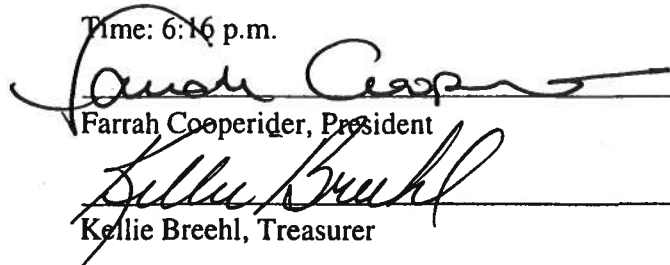 Time: 6:16 p.m.
Farrah Cooper
Farrah Cooperider, President
Kellie Breehl
Kellie Breehl, Treasurer